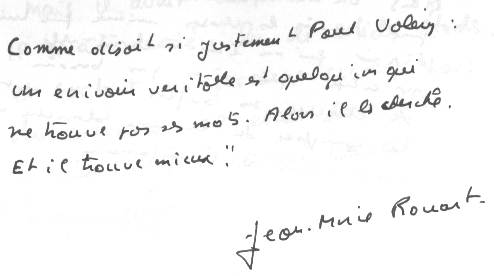 Comme disait si justement Paul Valéry :
un écrivain véritable est quelqu'un qui
ne trouve pas ses mots. Alors il les cherche.
Et il trouve mieux !!
Jean-Marie Rouart.